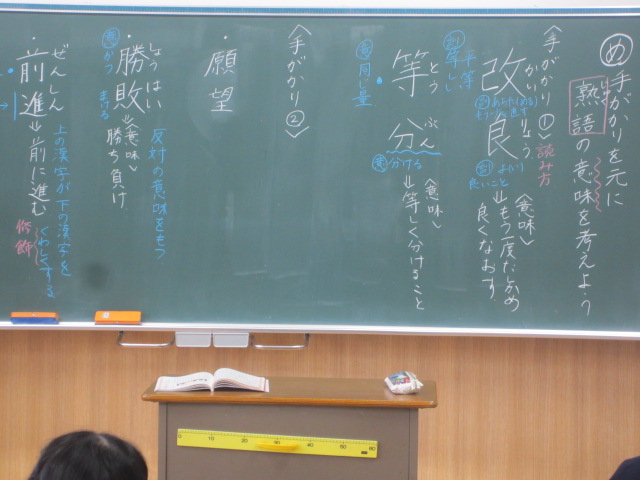 め 手がかりを元に
熟語の意味を考えよう
じゅく
〈手がかり①〉読み方
かい りょう
改良
訓 あらた(める)
訓 よ(い)
良いこと
〈意味〉
⇒もう一度だめ
良くなおす
訓
平等
等し
とう ぶん
等分
意 同じ量
意 分ける
〈意味〉
⇒等しく分けること
〈手がかり②〉
・願望
しょう はい
・勝敗⇒〈意味〉
勝ち負け
意 かつ まける
反対の意味をもつ
ぜんしん
・前進⇒前に進む
上の漢字が下の漢字を
くわしくする
修飾
10 20 30 40 50 60